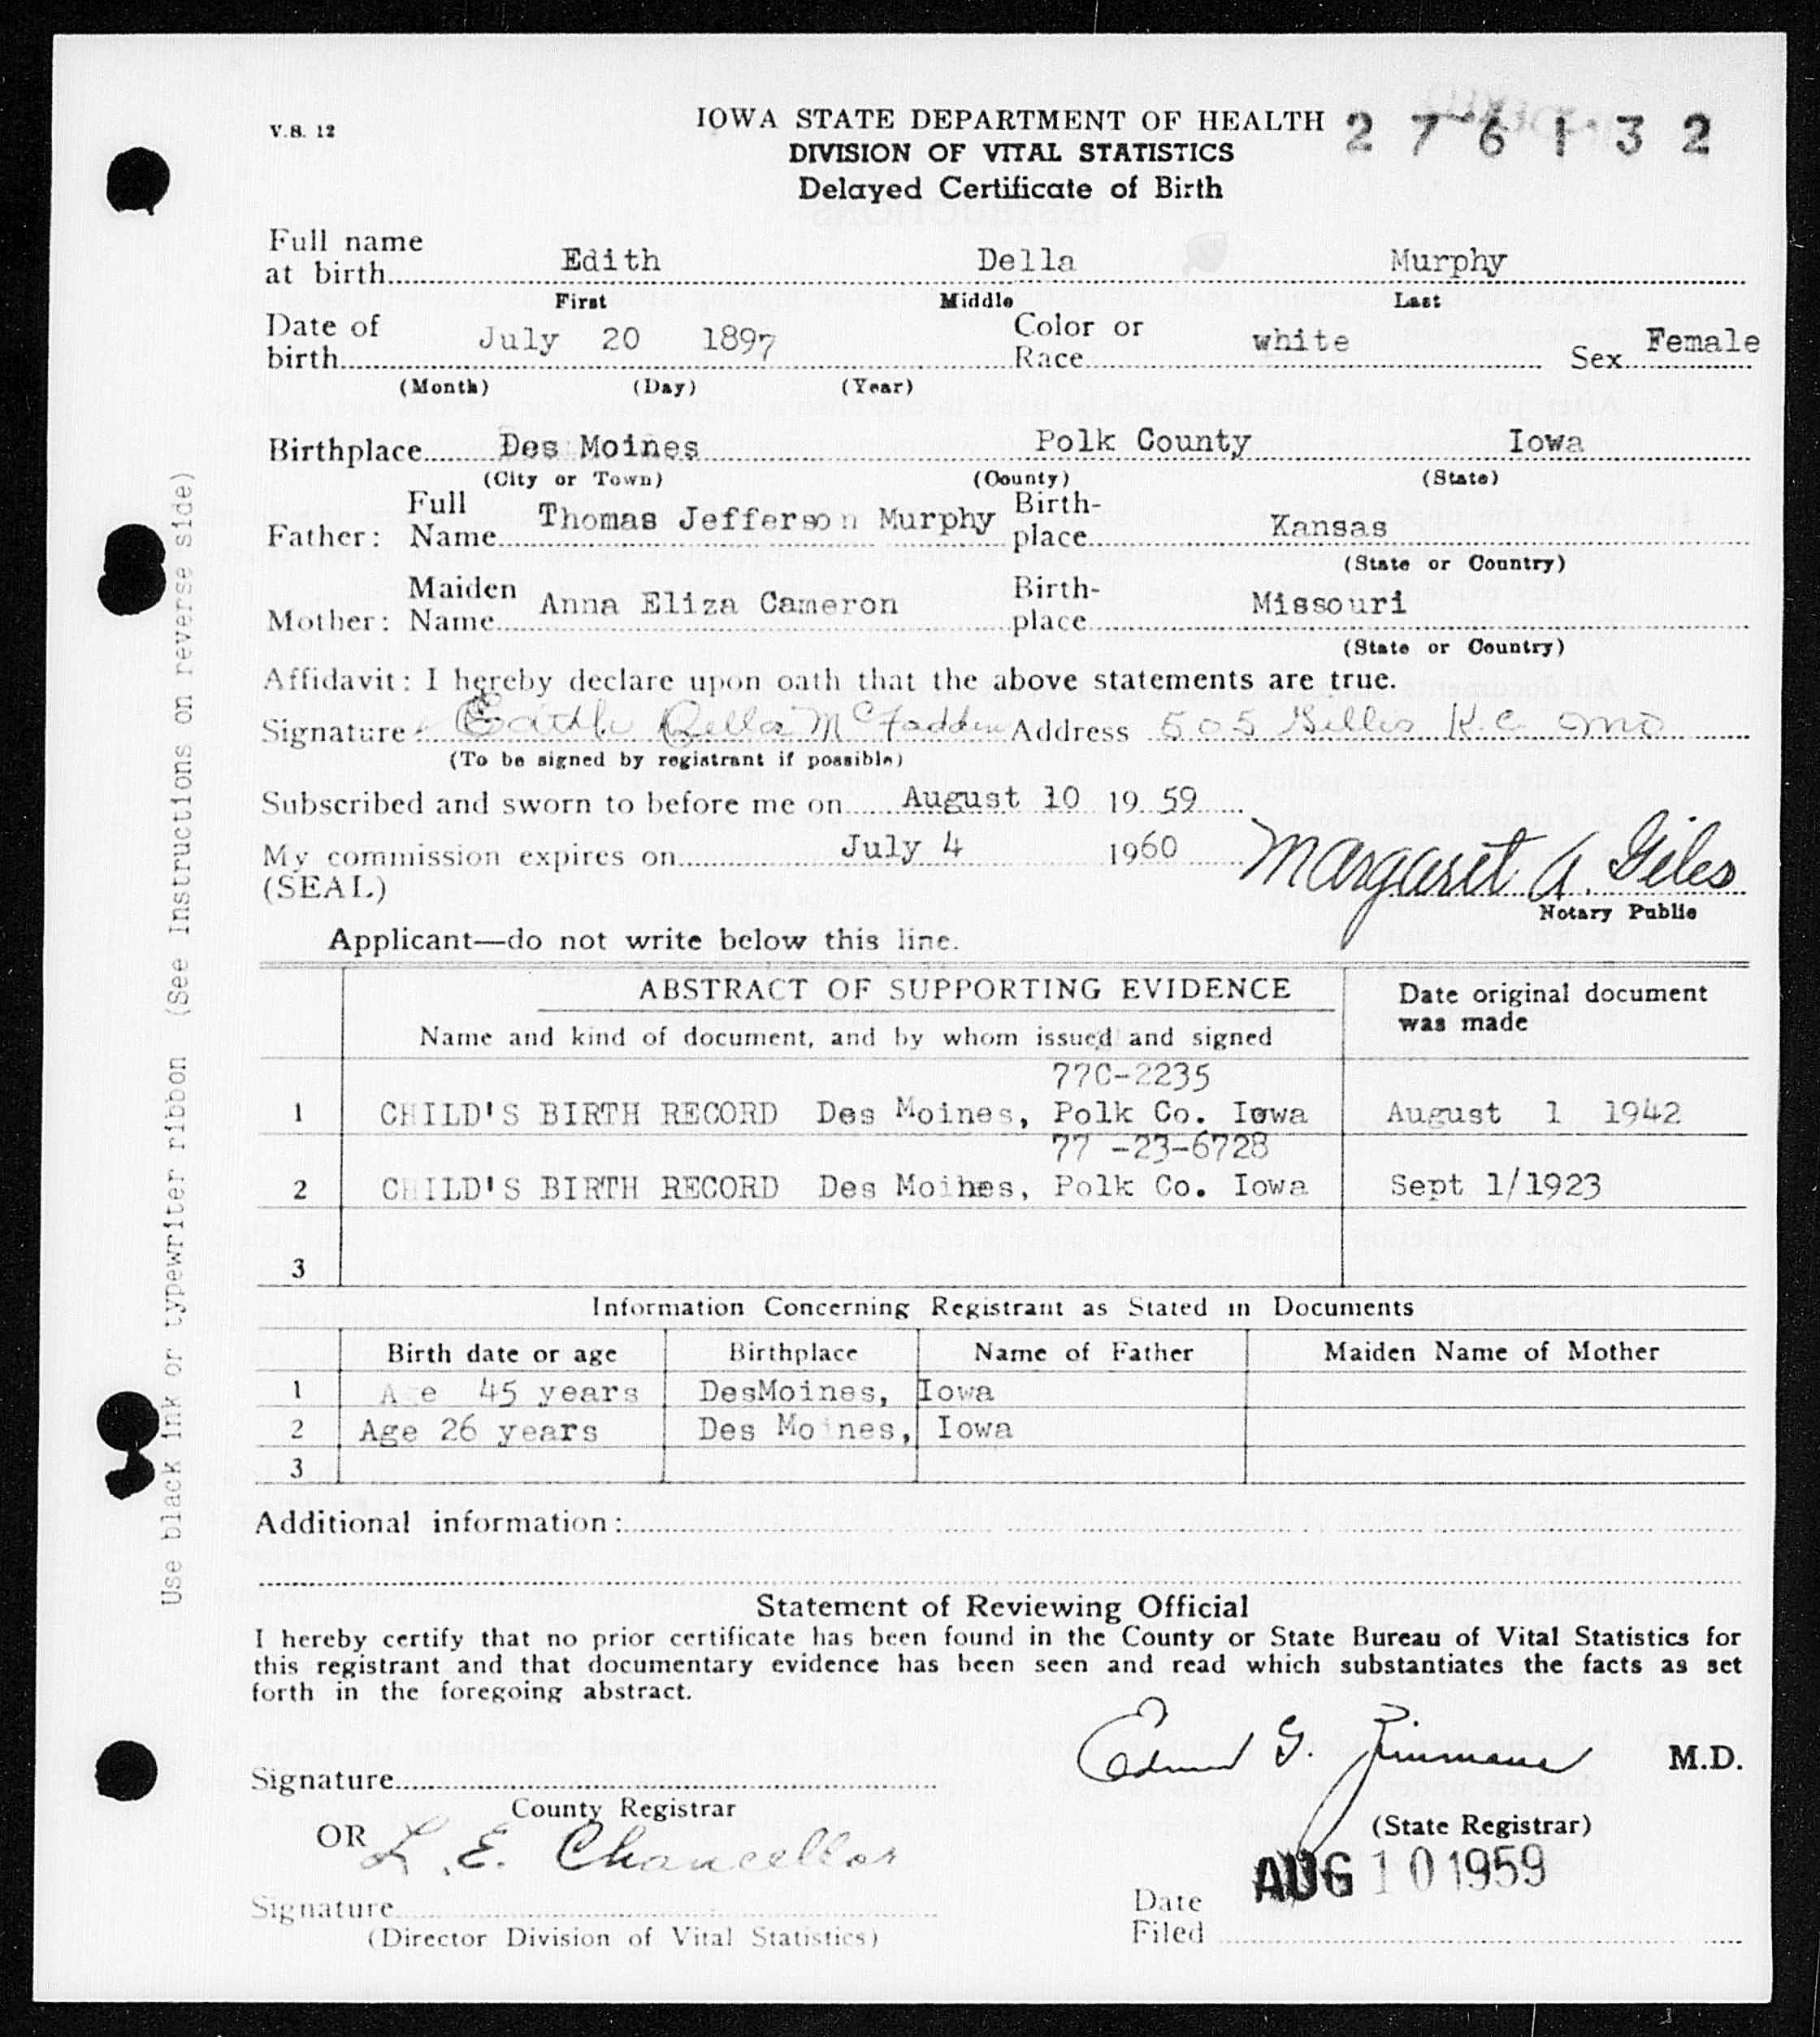 V.S. 12
IOWA STATE DEPARTMENT OF HEALTH
276132
DIVISION OF VITAL STATISTICS
Delayed Certificate of Birth
Full name at birth Edith Della Murphy
First Middle Last
Date of birth July 20 1897 Color or Race white Sex Female
(Month) (Day) (Year)
Birthplace Des Moines Polk County Iowa
(City or Town) (County) (State)
Father: Full Name Thomas Jefferson Murphy Birth-place Kansas
(State or Country)
Mother: Maiden Name Anna Eliza Cameron Birth-place Missouri
(State or Country)
Affidavit: I hereby declare upon oath that the above statements are true.
Signature Edith Della McFadden Address 505 Gillis K.C. Mo
(To be signed by registrant if possible)
Subscribed and sworn to before me on August 10 1959
My commission expires on July 4 1960 Margaret A. Giles
(SEAL)
Notary Public
Applicant—do not write below this line.
ABSTRACT OF SUPPORTING EVIDENCE
Name and kind of document, and by whom issued and signed
Date original document was made
77C-2235
1 CHILD'S BIRTH RECORD Des Moines, Polk Co. Iowa August 1 1942
77 -23-6728
2 CHILD'S BIRTH RECORD Des Moines, Polk Co. Iowa Sept 1/1923
3
Information Concerning Registrant as Stated in Documents
Birth date or age Birthplace Name of Father Maiden Name of Mother
1 Age 45 years DesMoines, Iowa
2 Age 26 years Des Moines, Iowa
3
Additional information:
Statement of Reviewing Official
I hereby certify that no prior certificate has been found in the County or State Bureau of Vital Statistics for
this registrant and that documentary evidence has been seen and read which substantiates the facts as set
forth in the foregoing abstract.
Signature
County Registrar
Edmund G. Zimmerer M.D.
(State Registrar)
OR
L. E. Chancellor
Signature
(Director Division of Vital Statistics)
Date Filed AUG 10 1959
Use black ink or typewriter ribbon (See Instructions on reverse side)